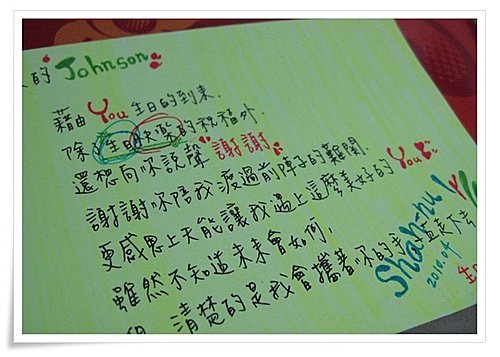 的 Johnson
藉由 You 生日的到來.
除了生日快樂的祝福外.
還想向你說聲 "謝謝"
謝謝你陪我渡過前陣子的難關.
更感恩上天能讓我遇上這麼美好的 You
雖然不知道未來會如何,
但 清楚的是我會攜著你的手 一直走下去
Shah-nu
2010.04